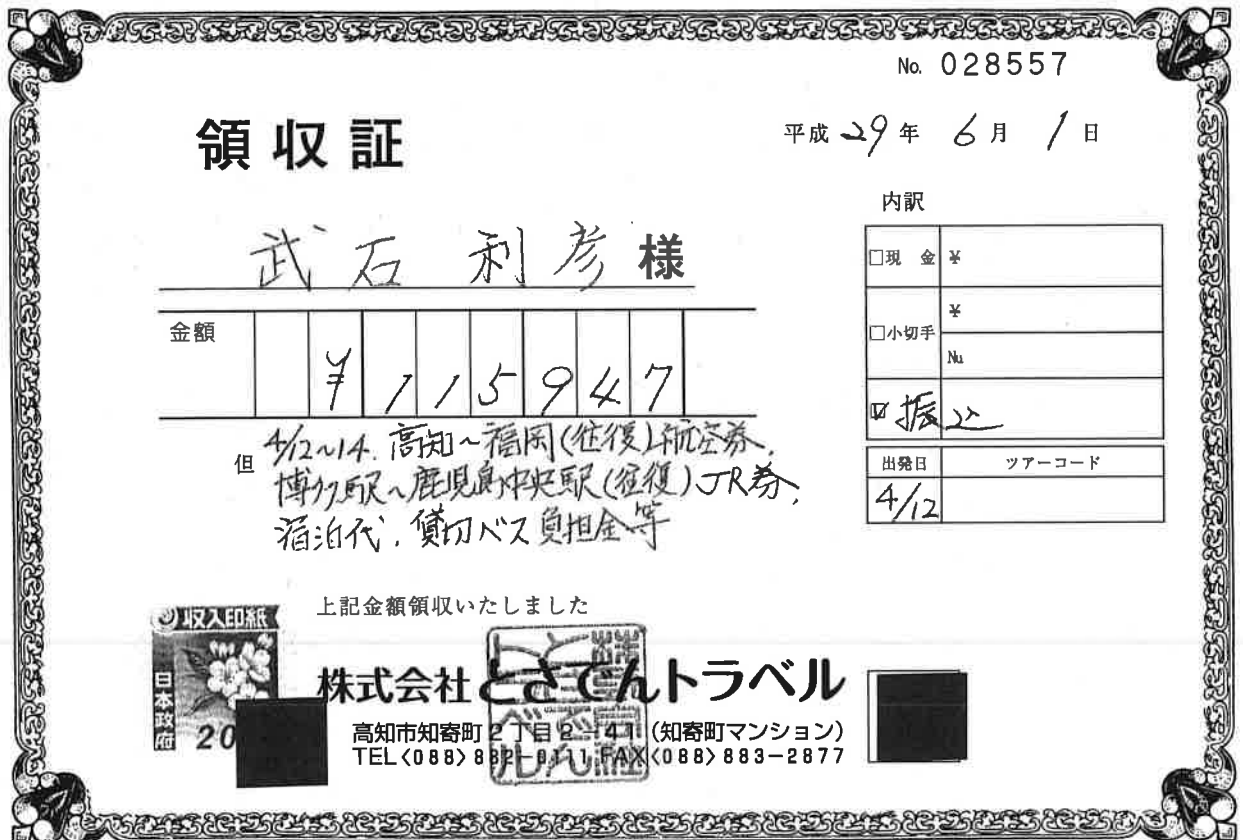 No. 028557
領収証
平成 29 年 6 月 1 日
武石 利彦 様
金額 ¥115947
但 4/12~14. 高知~福岡(往復)航空券、
博多駅~鹿児島中央駅(往復)JR券、
宿泊代、貸切バス負担金等
内訳
□現 金 ¥
□小切手 ¥
No.
☑振込
出発日 ツアーコード
4/12
上記金額領収いたしました
収入印紙
日本政府
20
株式会社とさでんトラベル
高知市知寄町2丁目2-41(知寄町マンション)
TEL<088>882-0111 FAX<088>883-2877